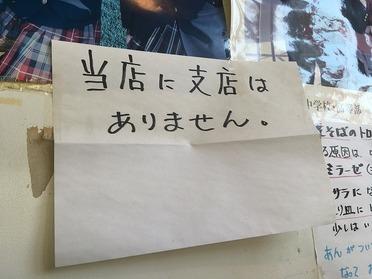 当店に支店は
ありません。
中学校
そばのトロ
る原因は
ミラーゼ
サラに
り皿に
少しは
あんがつい
なって